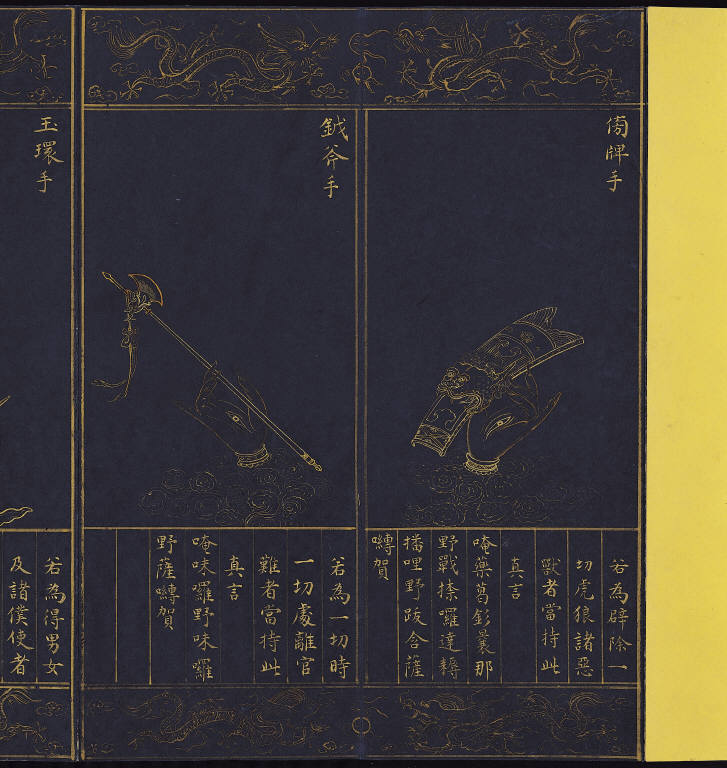 傍牌手
若為辟除一
切虎狼諸惡
獸者當持此
真言
唵藥葛釤曩那
野戰捺囉達耨
播哩野跋舍薩
嚩賀
鉞斧手
若為一切時
一切處離官
難者當持此
真言
唵味囉野味囉
野薩嚩賀
玉環手
若為得男女
及諸僕使者